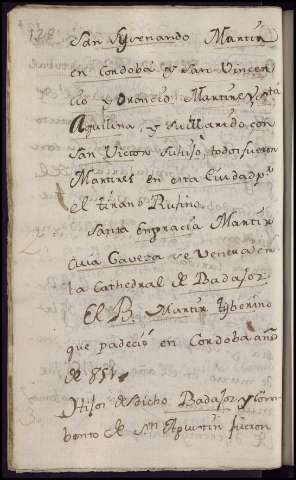 128
San Syvenando Martir
en Cordoba y San Vincen
cio y Oroncio, Martires y sta
Aquilina, y su Marido con
San Victor su hijo, todos fueron
Martires en esta Ciudad pr
el tirano Rufino.
Santa Engracia Martir
cuia Caveza se venera en
la Cathedral de Badajoz.
El B. Martir Tyberino
que padeció en Cordoba año
de 851.
Hijos de dicho Badajoz y Com
bento de Sn Agustin fueron